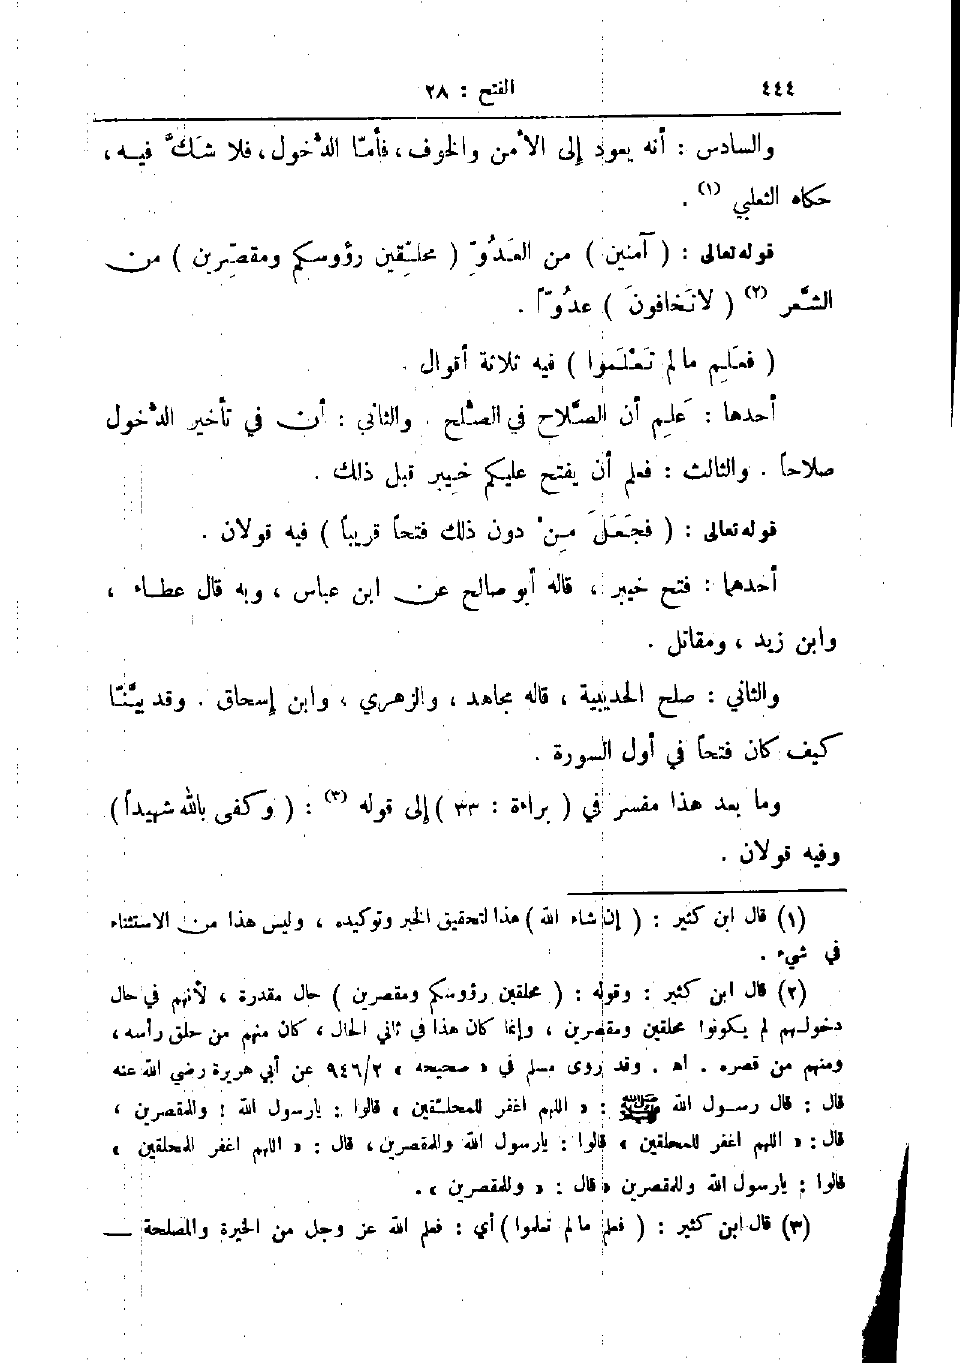 ٤٤٤ الفتح : ٢٨
والسادس : أنه يعود إلى الأمن والخوف ، فأمّا الدُّخول ، فلا شكَّ فيه ،
حكاه الثعلبي (١) .
قوله تعالى : ( آمنين ) من العَدُوِّ ( محلِّقين رؤوسكم ومقصِّرين ) من
الشَّعر (٢) ( لاتَخافونَ ) عدُوّاً .
( فعَلِم مالم تَعْلَموا ) فيه ثلاثة أقوال .
أحدها : عَلِم أن الصَّلاح في الصُّلح . والثاني : أن في تأخير الدُّخول
صلاحاً . والثالث : فعلم أن يفتح عليكم خيبر قبل ذلك .
قوله تعالى : ( فجَعَلَ مِنْ دون ذلك فتحاً قريباً ) فيه قولان .
أحدهما : فتح خيبر ، قاله أبو صالح عن ابن عباس ، وبه قال عطاء ،
وابن زيد ، ومقاتل .
والثاني : صلح الحديبية ، قاله مجاهد ، والزهري ، وابن إسحاق . وقد بيَّنّا
كيف كان فتحاً في أول السورة .
وما بعد هذا مفسر في ( براءة : ٣٣ ) إلى قوله (٣) : ( وكفى بالله شهيداً )
وفيه قولان .
(١) قال ابن كثير : ( إن شاء الله ) هذا لتحقيق الخبر وتوكيده ، وليس هذا من الاستثناء
في شيء .
(٢) قال ابن كثير : وقوله : ( محلقين رؤوسكم ومقصرين ) حال مقدرة ، لأنهم في حال
دخولهم لم يكونوا محلقين ومقصرين ، وإنما كان هذا في ثاني الحال ، كان منهم من حلق رأسه ،
ومنهم من قصره . اه . وقد روى مسلم في « صحيحه » ٩٤٦/٢ عن أبي هريرة رضي الله عنه
قال : قال رسول الله ﷺ : « اللهم اغفر للمحلّقين » قالوا : يارسول الله ! وللمقصرين ،
قال : « اللهم اغفر للمحلقين » قالوا : يارسول الله وللمقصرين ، قال : « اللهم اغفر للمحلقين »
قالوا : يارسول الله وللمقصرين « قال : « وللمقصرين » .
(٣) قال ابن كثير : ( فعلم مالم تعلموا ) أي : فعلم الله عز وجل من الخيرة والمصلحة —